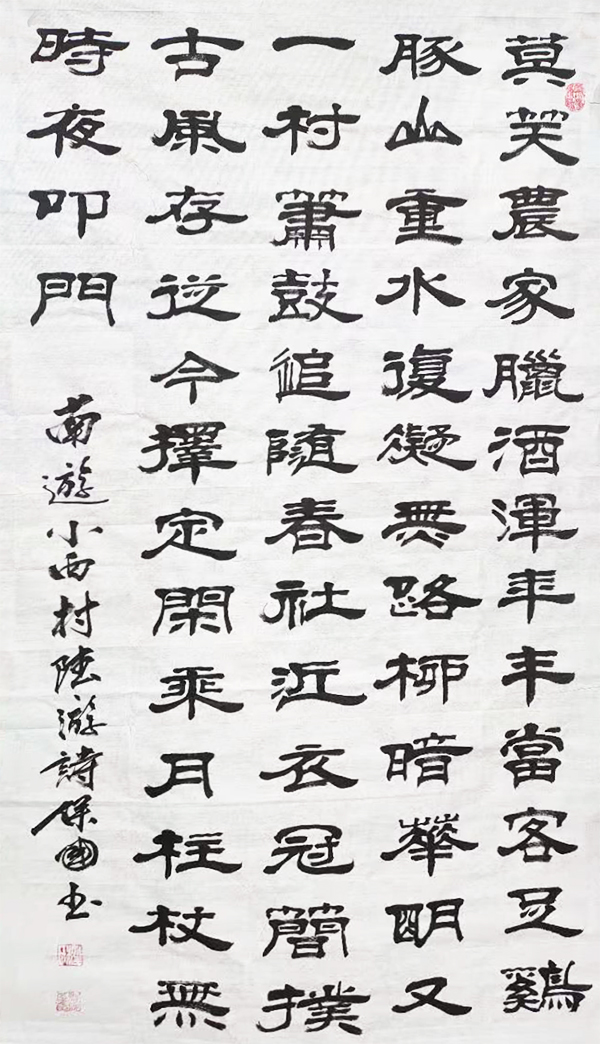 莫笑農家臘酒渾年丰當客足鷄
豚山重水復疑無路柳暗華明又
一村簫鼓追隨春社近衣冠簡撲
古風存從今擇定閑乘月柱杖無
時夜叩門
南遊小西村陸游詩保國书